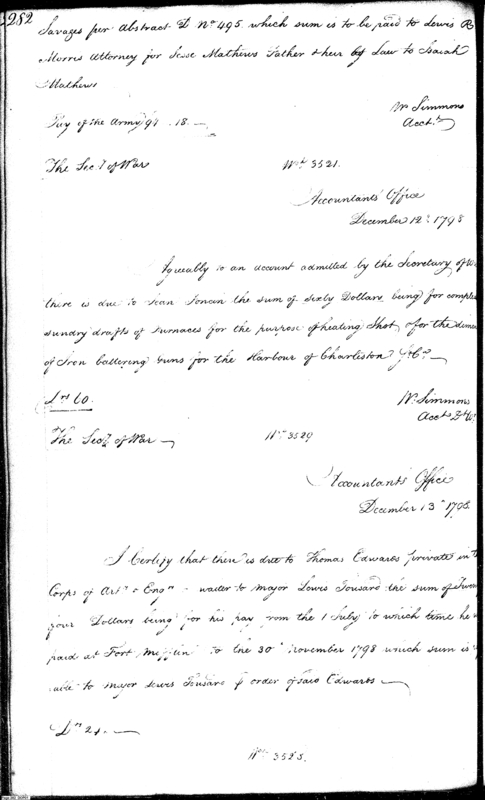 282
Savages per Abstract D No 495 which sum is to be paid to Lewis R
Morris Attorney for Jesse Mathews Father & heir by Law to Isaiah
Mathews
Wm Simmons
Acct.
Pay of the Army 97 .18.
The Secy of War
No 3521.
Accountants Office
December 12th 1798
Agreeably to an account admitted by the Secretary of W
there is due to Jean the sum of sixty Dollars being for comple
sundry drafts of furnaces for the purpose of heating Shot & for the dimen
of Iron battering Guns for the Harbour of Charleston &Ca
Drs 60.
Wm Simmons
Acct D W
The Secy of War
No 3529
Accountants Office
December 13th 1798.
I Certify that there is due to Thomas Edwards private in t
Corps of Arty & Engrs - waiter to Major Lewis Tousard the sum of Twen
four Dollars being for his pay from the 1 July to which time he w
paid at Fort Mifflin to the 30th November 1798 which sum is
able to Major Lewis Tousard p order of said Edwards
Drs 24.
No 3525.